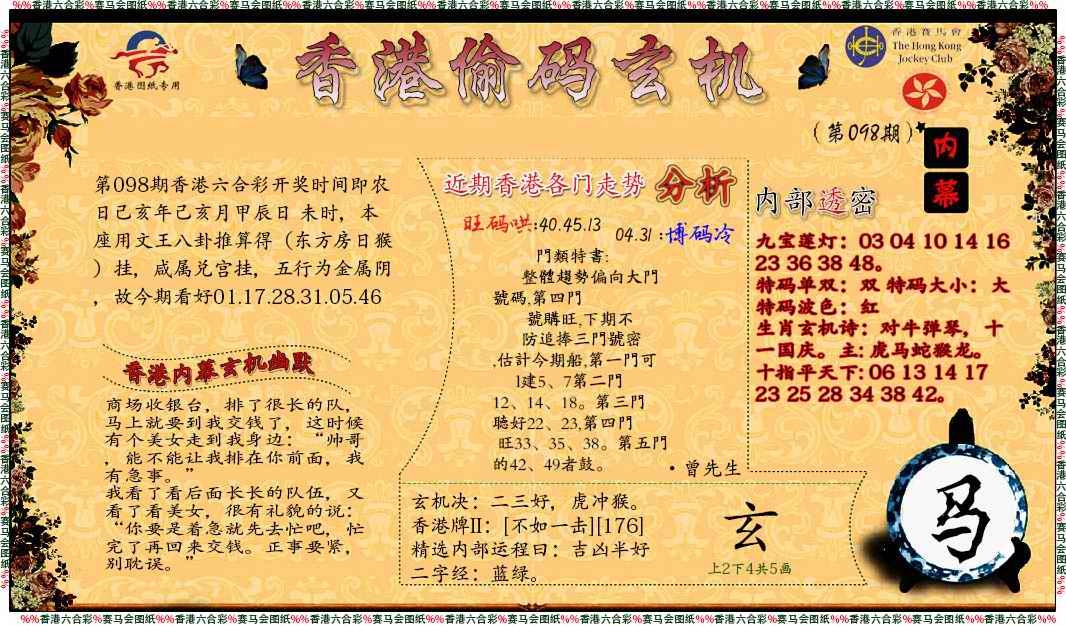 %%香港六合彩%赛马会图纸%%香港六合彩%赛马会图纸%%香港六合彩%赛马会图纸%%香港六合彩%赛马会图纸%%香港六合彩%赛马会图纸%%香港六合彩%赛马会图纸%%香港六合彩%赛马会图纸%%香港六合彩%%
香港图纸专用
香港偷码玄机
香港賽馬會
The Hong Kong
Jockey Club
(第098期)
内
幕
第098期香港六合彩开奖时间即农
日己亥年己亥月甲辰日 未时，本
座用文王八卦推算得（东方房日猴
）挂，咸属兑宫挂，五行为金属阴
，故今期看好01.17.28.31.05.46
香港内幕玄机幽默
商场收银台，排了很长的队，
马上就要到我交钱了，这时候
有个美女走到我身边：“帅哥
，能不能让我排在你前面，我
有急事。”
我看了看后面长长的队伍，又
看了看美女，很有礼貌的说：
“你要是着急就先去忙吧，忙
完了再回来交钱。正事要紧，
别耽误。”
近期香港各门走势 分析
旺码哄:40.45.13 04.31:博码冷
門類特書:
整體趨勢偏向大門
號碼,第四門
號購旺,下期不
防追捧三門號密
,估計今期船,第一門可
1建5、7第二門
12、14、18。第三門
聽好22、23,第四門
旺33、35、38。第五門
的42、49者鼓。
·曾先生
玄机决：二三好，虎冲猴。
香港牌II：[不如一击][176]
精选内部运程曰：吉凶半好
二字经：蓝绿。
玄
上2下4共5画
内部透密
九宝莲灯：03 04 10 14 16
23 36 38 48。
特码单双：双 特码大小：大
特码波色：红
生肖玄机诗：对牛弹琴，十
一国庆。主: 虎马蛇猴龙。
十指平天下: 06 13 14 17
23 25 28 34 38 42。
马
%%香港六合彩%赛马会图纸%%香港六合彩%赛马会图纸%%香港六合彩%赛马会图纸%%香港六合彩%赛马会图纸%%香港六合彩%赛马会图纸%%香港六合彩%赛马会图纸%%香港六合彩%赛马会图纸%%香港六合彩%%